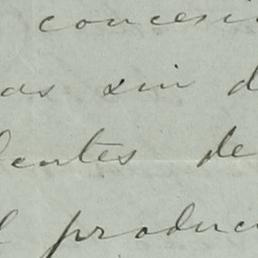 concesi
as sin d
lentes de
l produc